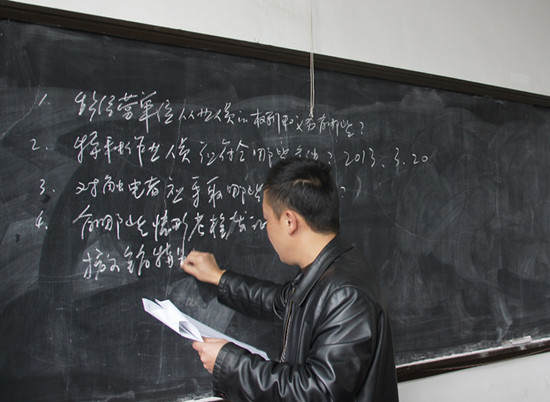 1. 生产经营单位从业人员的权利和义务有哪些?
2. 特种作业人员应符合哪些条件? 2013.3.20
3. 对触电者应采取哪些?
4. 有哪些情形考核发证